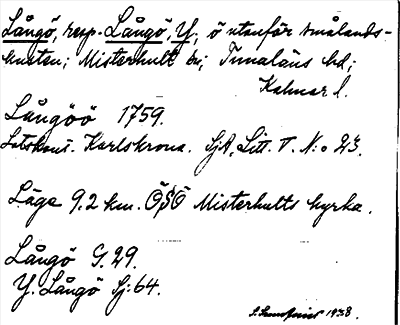 Långö, resp. Långö, Y., ö utanför smålands-
kusten; Misterhult sn; Tunaläns hd;
Kalmar l.
Långöö 1759.
Lotskont. Karlskrona. SjA, Litt. V. N:o 23.
Läge 9.2 km. ÖSÖ Misterhults kyrka.
Långö G. 29.
Y. Långö Sj: 64.
1938.